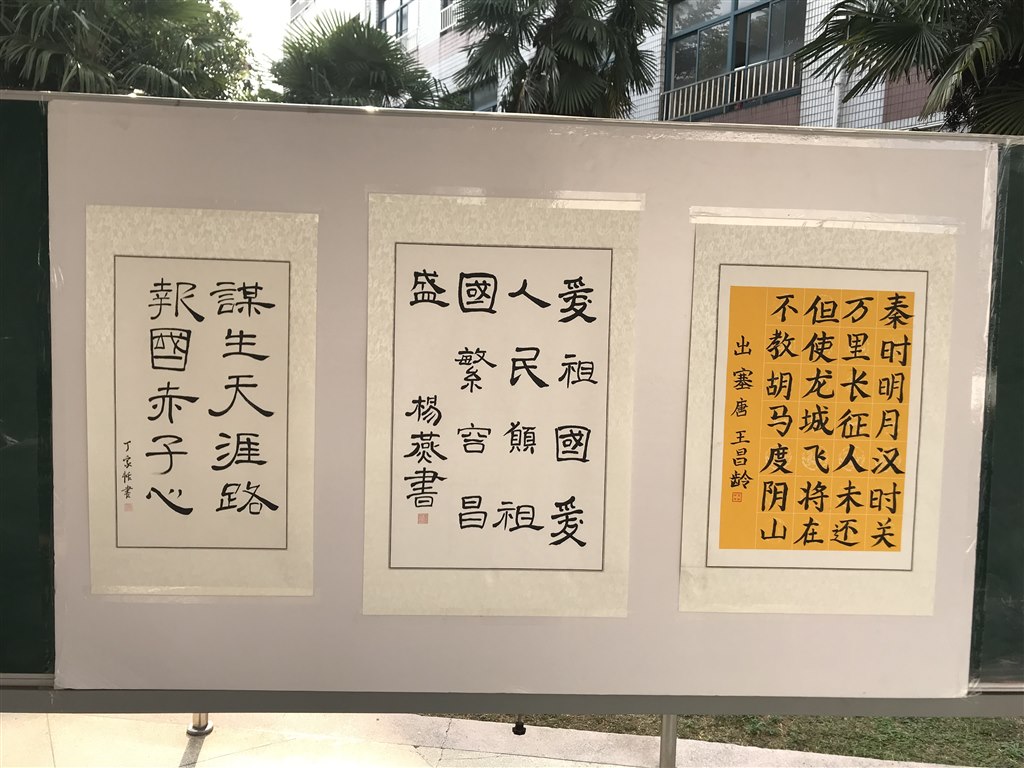 謀生天涯路
報國赤子心
爱祖國爱
人民願祖
國繁容昌
盛
楊燕書
秦时明月汉时关
万里长征人未还
但使龙城飞将在
不教胡马度阴山
出塞 唐 王昌龄